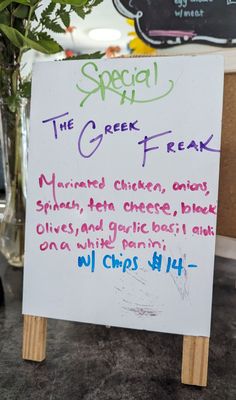 egg
w/meat
Special
The Greek
Freak
Marinated chicken, onions,
spinach, feta cheese, black
olives, and garlic basil aioli
on a white panini
w/ Chips $14-